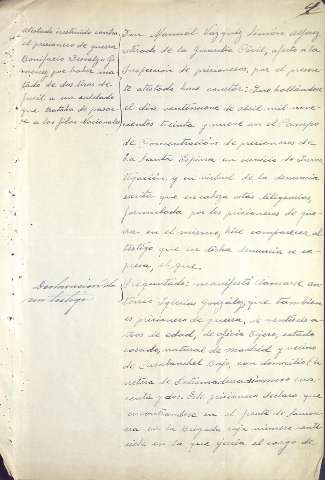 4
atestado instruido contra
el prisionero de guerra
Bonifacio
por haber ma-
tado de dos tiros de
fusil a un soldado
que trataba de pasar-
se a las filas Nacionales
Don Manuel Vazquez Simón, Alferez
retirado de la Guardia Civil, afecto a la
Inspección de prisioneros, por el presen-
te atestado hace constar: Que hallándose
el día veintinueve de abril mil nove-
cientos treinta y nueve en el Campo
de Concentración de prisioneros de
La Santa Espina en servicio de Inves-
tigación y en virtud de la denuncia
escrita que encabeza estas diligencias,
formulada por los prisioneros de gue-
rra en el mismo, hice comparecer al
testigo que en dicha denuncia se ex-
presa, el que.
Declaración de
un testigo
Preguntado: manifestó llamarse An-
tonio Iglesias González, que tambien
es prisionero de guerra, de veintidos
años de edad, de oficio Cajero, estado
casado, natural de Madrid y vecino
de Carabanchel Bajo, con domicilio Ca-
rretera de Extremadura número cua-
renta y dos. Este prisionero declara que
encontrandose en el frente de Samosie-
rra en la Brigada roja número veinti-
siete en la que hacía el cargo de